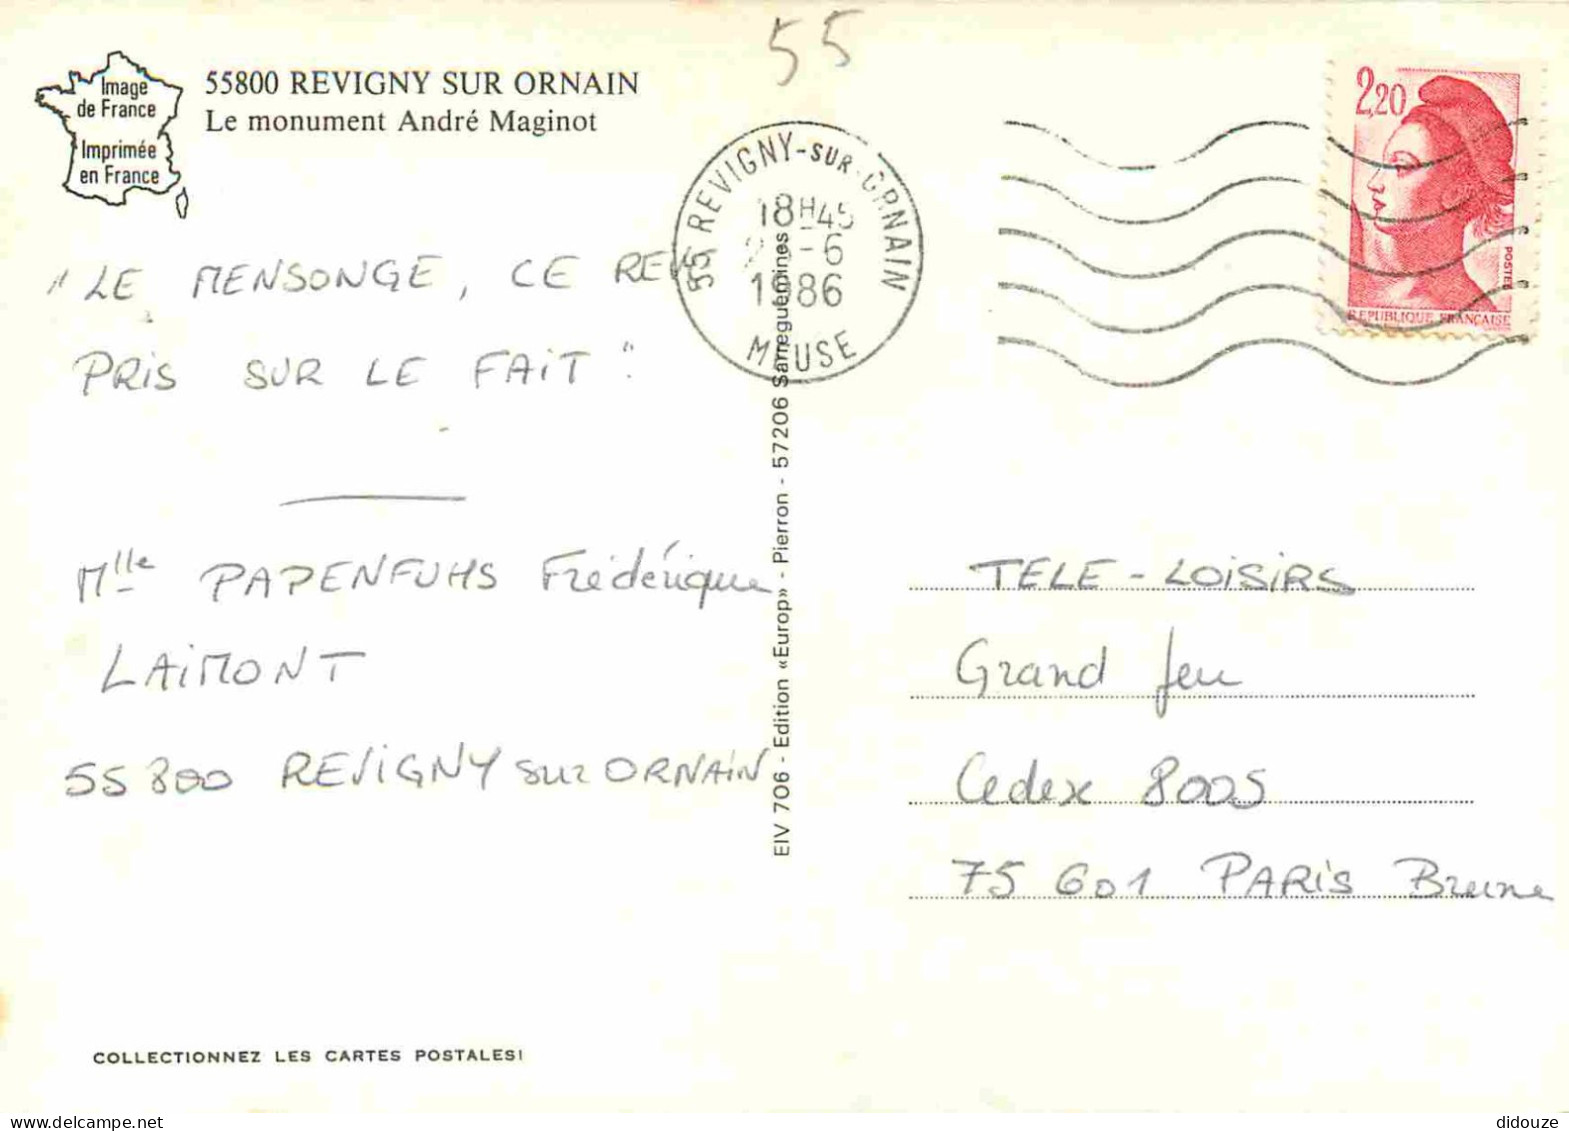 55
Image
de France
Imprimée
en France
55800 REVIGNY SUR ORNAIN
Le monument André Maginot
55 REVIGNY-SUR-ORNAIN
18H45
-6
1986
MEUSE
2,20
POSTES
REPUBLIQUE FRANÇAISE
"LE MENSONGE, CE
PRIS SUR LE FAIT".
Mlle PAPENFUHS Frédérique
LAIMONT
55800 REVIGNY sur ORNAIN
EIV 706 - Edition «Europ» - Pierron - 57206 Sarreguemines
TELE-LOISIRS
Grand Jeu
Cedex 8005
75601 PARIS Brune
COLLECTIONNEZ LES CARTES POSTALES!
didouze